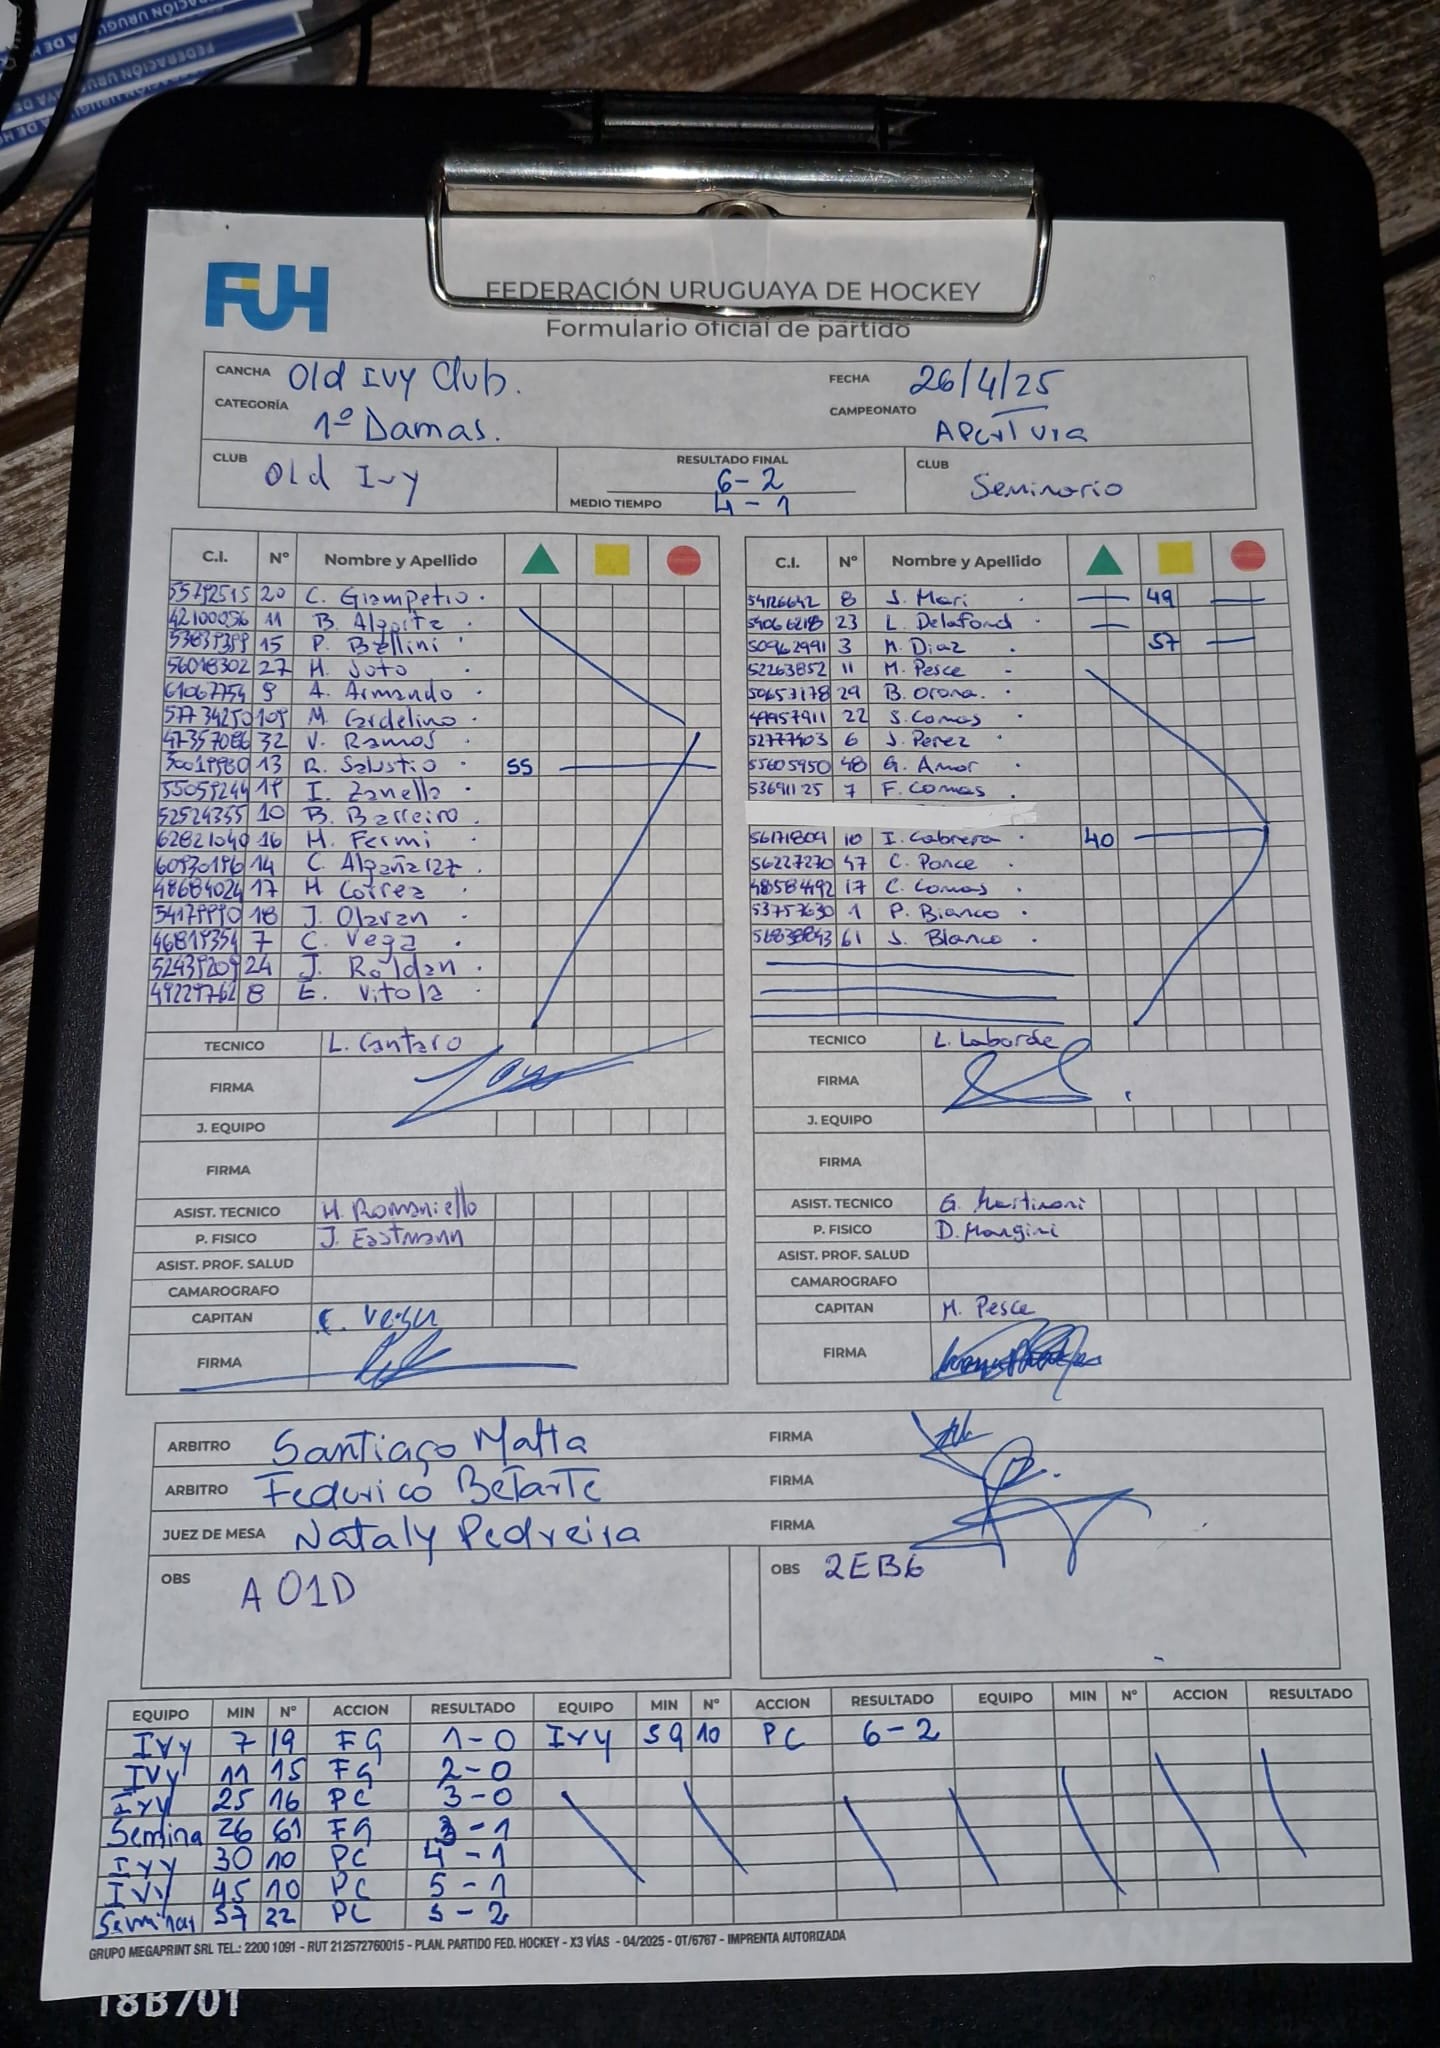 FUH
FEDERACIÓN URUGUAYA DE HOCKEY
Formulario oficial de partido
CANCHA Old Ivy Club. FECHA 26/4/25
CATEGORÍA 1º Damas. CAMPEONATO Apertura
CLUB Old Ivy RESULTADO FINAL 6-2 CLUB Seminario
MEDIO TIEMPO 4-1
C.I. Nº Nombre y Apellido C.I. Nº Nombre y Apellido
55792515 20 C. Giampetio. 54126642 8 J. Mari 49
42100056 11 B. Algorta. 54066218 23 L. Delafond
53839399 15 P. Bellini 50962991 3 M. Diaz 57
56018302 27 M. Soto 52263852 11 M. Pesce
61067754 9 A. Armando 50653178 29 B. Orona.
57734250 109 M. Gardelino 49957911 22 S. Comas
47357086 32 V. Ramos 52777403 6 J. Perez
50019980 13 R. Salustio 55 55605950 48 G. Amor
55059244 19 I. Zanella 53691125 7 F. Comas
52524355 10 B. Barreiro.
62821040 16 M. Fermi 56171809 10 I. Cabrera 40
60930196 14 C. Algañaraz 56227270 47 C. Ponce
48684024 17 M Correa 48584492 17 C. Comas
54179990 18 J. Olaran 53757630 1 P. Bianco
46819354 7 C. Vega 56838843 61 J. Blanco
52439209 24 J. Roldan
49229762 8 E. Vitola
TECNICO L. Cantaro TECNICO L. Laborde
FIRMA FIRMA
J. EQUIPO J. EQUIPO
FIRMA FIRMA
ASIST. TECNICO M. Romaniello ASIST. TECNICO G. Martinoni
P. FISICO J. Eastmann P. FISICO D. Mangini
ASIST. PROF. SALUD ASIST. PROF. SALUD
CAMAROGRAFO CAMAROGRAFO
CAPITAN C. Vega CAPITAN M. Pesce
FIRMA FIRMA
ARBITRO Santiago Matta FIRMA
ARBITRO Federico Betarte FIRMA
JUEZ DE MESA Nataly Pedreira FIRMA
OBS A01D OBS 2EB6
EQUIPO MIN Nº ACCION RESULTADO EQUIPO MIN Nº ACCION RESULTADO EQUIPO MIN Nº ACCION RESULTADO
Ivy 7 19 FG 1-0 Ivy 59 10 PC 6-2
Ivy 11 15 FG 2-0
Ivy 25 16 PC 3-0
Semina 26 61 FG 3-1
Ivy 30 10 PC 4-1
Ivy 45 10 PC 5-1
Seminar 57 22 PC 5-2
GRUPO MEGAPRINT SRL TEL.: 2200 1091 - RUT 212572760015 - PLAN. PARTIDO FED. HOCKEY - X3 VÍAS - 04/2025 - OT/6767 - IMPRENTA AUTORIZADA
18B701